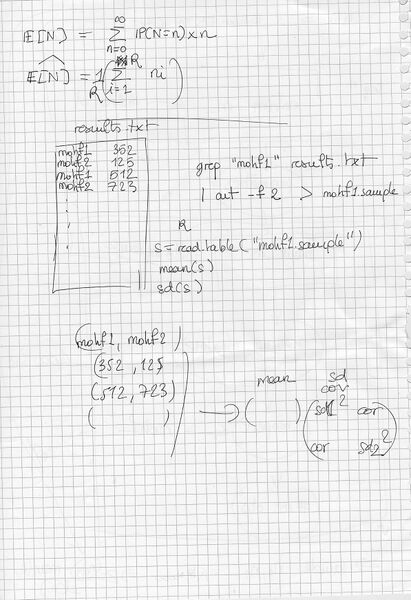 E[N] = ∞∑n=0 P(N=n) x n
E[N] = 1/R ( R∑i=1 ni )
results.txt
mohf1 352
mohf2 125
mohf1 512
mohf2 723
grep "mohf1" results.txt
| cut -f 2 > mohf1.sample
R
s = read.table("mohf1.sample")
mean(s)
sd(s)
(mohf1, mohf2)
(352, 125
(512, 723)
( )
mean sd
cov
( ) (sd1² cor
cor sd2²)